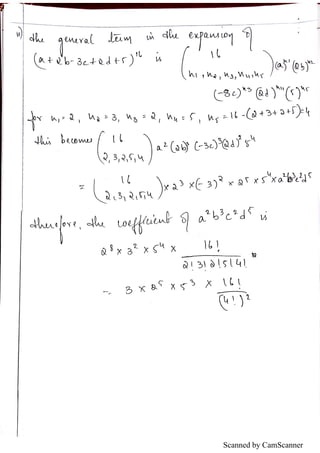 ii) The general term in the expansion of
(a + 2b - 3c + 2d + 5)^16 is ( 16
n1, n2, n3, n4, n5 ) (a)^n1 (2b)^n2
(-3c)^n3 (2d)^n4 (5)^n5
for n1 = 2, n2 = 3, n3 = 2, n4 = 5, n5 = 16 - (2+3+2+5) = 4
this becomes ( 16
2, 3, 2, 5, 4 ) a^2 (2b)^3 (-3c)^2 (2d)^5 5^4
= ( 16
2, 3, 2, 5, 4 ) x 2^3 x (-3)^2 x 2^5 x 5^4 x a^2 b^3 c^2 d^5
therefore, the coefficient of a^2 b^3 c^2 d^5 is
2^8 x 3^2 x 5^4 x 16!
2! 3! 2! 5! 4!
= 3 x 2^5 x 5^3 x 16!
(4!)^2
Scanned by CamScanner